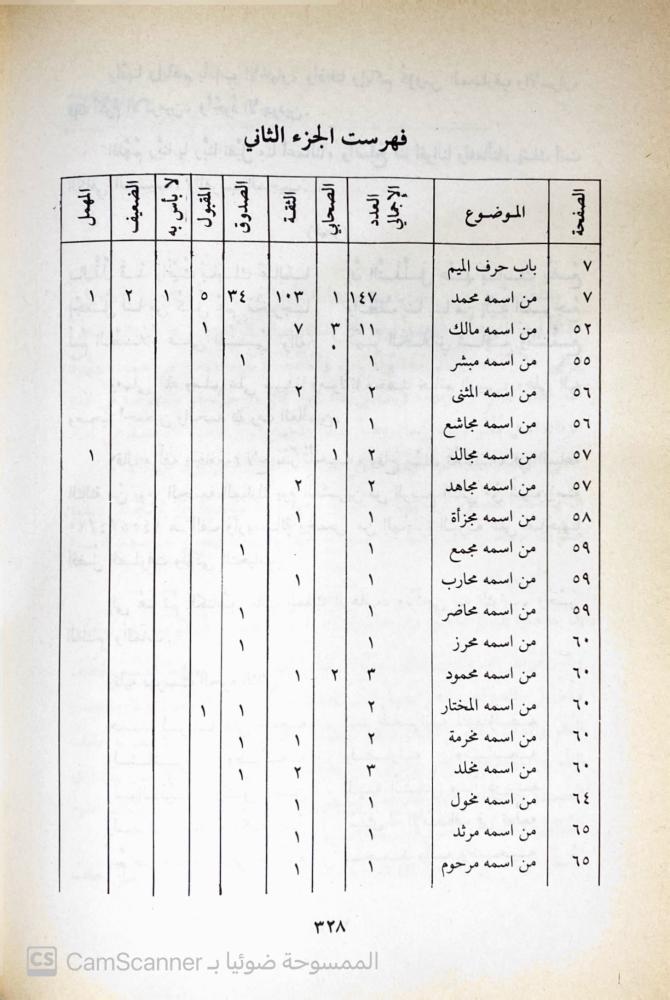 فهرست الجزء الثاني
الصفحة الموضوع العدد الإجمالي الصحابي الثقة الصدوق المقبول لا بأس به الضعيف المهمل
٧ باب حرف الميم
٧ من اسمه محمد ١٤٧ ١ ١٠٣ ٣٤ ٥ ١ ٢ ١
٥٢ من اسمه مالك ١١ ٣ ٧ ١
٥٥ من اسمه مبشر ١ ٠ ١
٥٦ من اسمه المثنى ٢ ٢
٥٦ من اسمه مجاشع ١ ١
٥٧ من اسمه مجالد ٢ ١ ١
٥٧ من اسمه مجاهد ٢ ٢
٥٨ من اسمه مجزأة ١ ١
٥٩ من اسمه مجمع ١ ١
٥٩ من اسمه محارب ١ ١
٥٩ من اسمه محاضر ١ ١
٦٠ من اسمه محرز ١ ١
٦٠ من اسمه محمود ٣ ٢ ١
٦٠ من اسمه المختار ٢ ١ ١
٦٠ من اسمه مخرمة ٢ ١ ١
٦٠ من اسمه مخلد ٣ ٢ ١
٦٤ من اسمه مخول ١ ١
٦٥ من اسمه مرثد ١ ١
٦٥ من اسمه مرحوم ١ ١
٣٢٨
CS CamScanner الممسوحة ضوئيا بـ